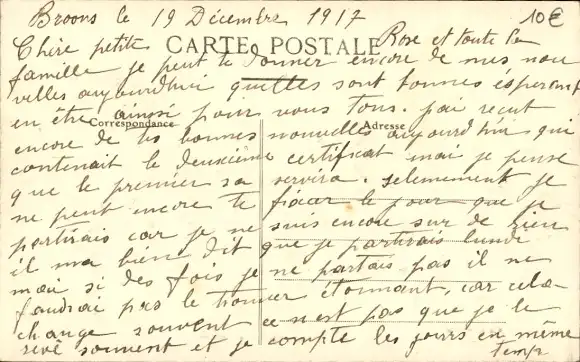 Broons le 19 Décembre 1917
10€
Chère petite Rose et toute la
CARTE POSTALE
famille je peut te donner encore de mes nou
velles aujourd'hui quelles sont bonnes éspérant
en être ainssi pour vous tous. jai recut
Correspondance
Adresse
encore de tes bonnes nouvelles aujourd'hui qui
contenait le deuxième certificat mai je pense
que le premier sa servira. selemement je
ne peut encore te ficser le jour que je
partirais car je ne suis encore sur de rien
il ma bien dit que je partirais lundi
mai si des fois je ne partais pas il ne
faudrai pas le trouver étonnant, car cela
change souvent ce n'est pas que je le
revé souvent et je compte les jours en même
temp